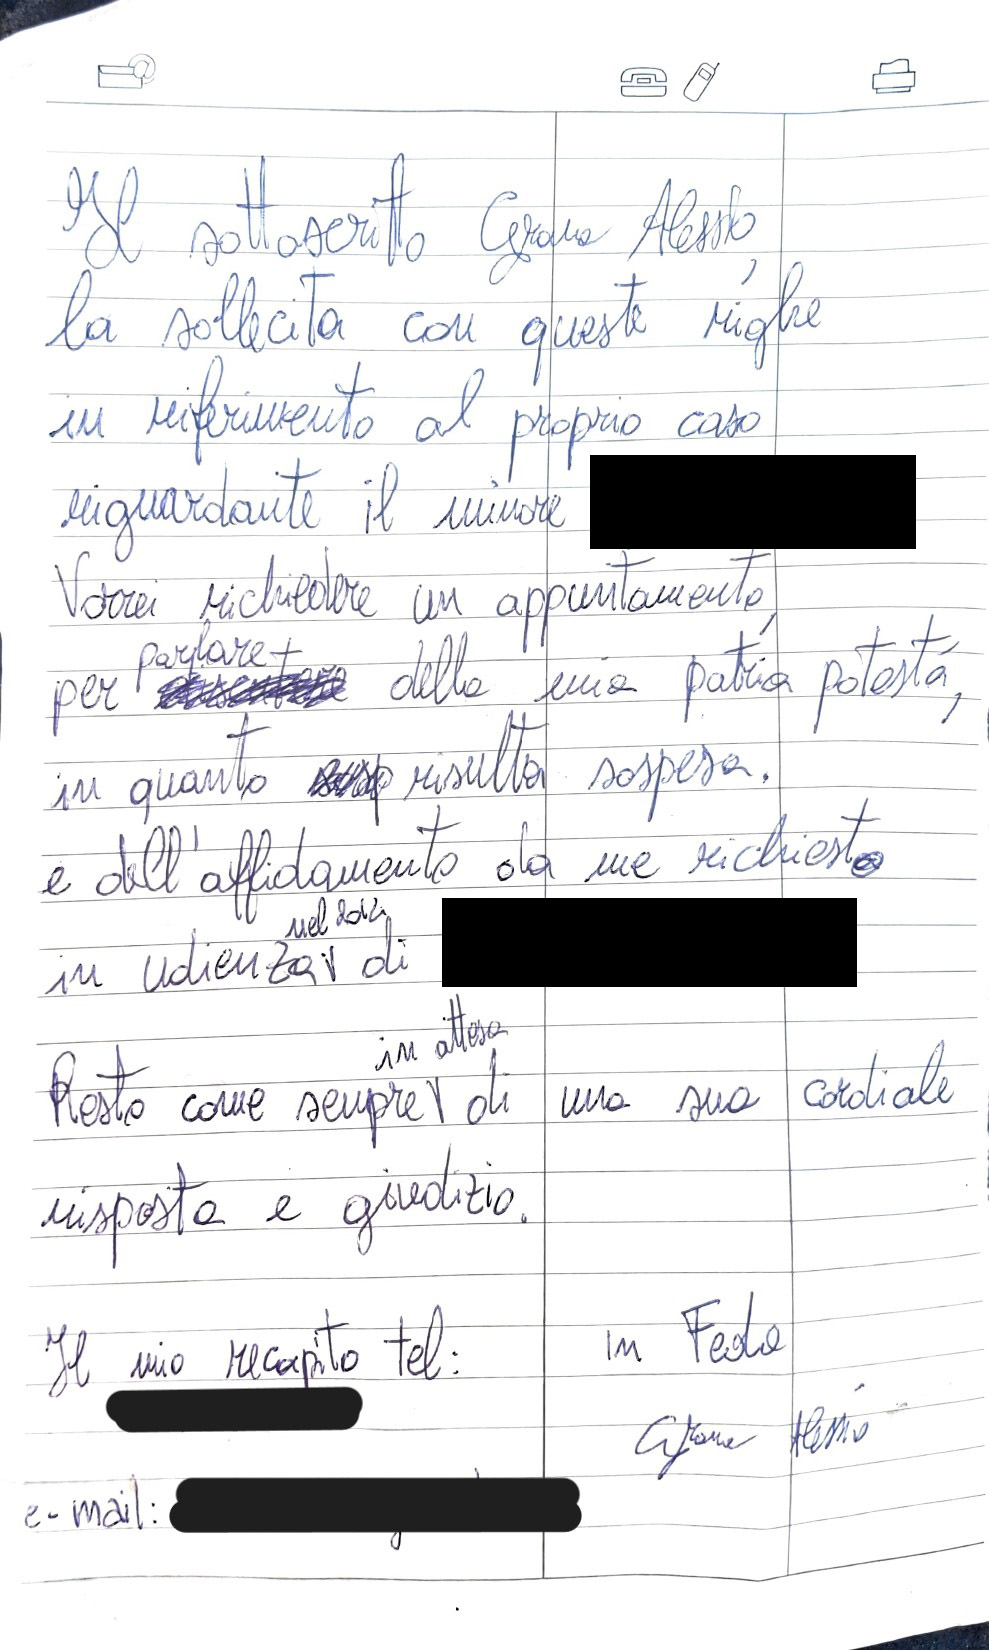 Il sottoscritto Alessio
la sollecita con queste righe
in riferimento al proprio caso
riguardante il minore
Vorrei richiedere un appuntamento,
parlare
per della mia patria potestà,
in quanto risulta sospesa.
e dell'affidamento da me richiesto
nel 2012
in udienza di
in attesa
Resto come sempre di una sua cordiale
risposta e giudizio.
Il mio recapito tel:
in Fede
Alessio
e-mail: